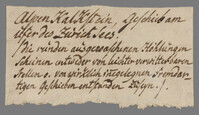 Alpen Kalkstein, Geschieb am
ufer des Zürich Sees.
(Die runden ausgewaschenen Höhlungen
scheinen entweder von leichter verwitterbaren
Stellen o. von wirklich
Geschieben entstanden zu seyn.)